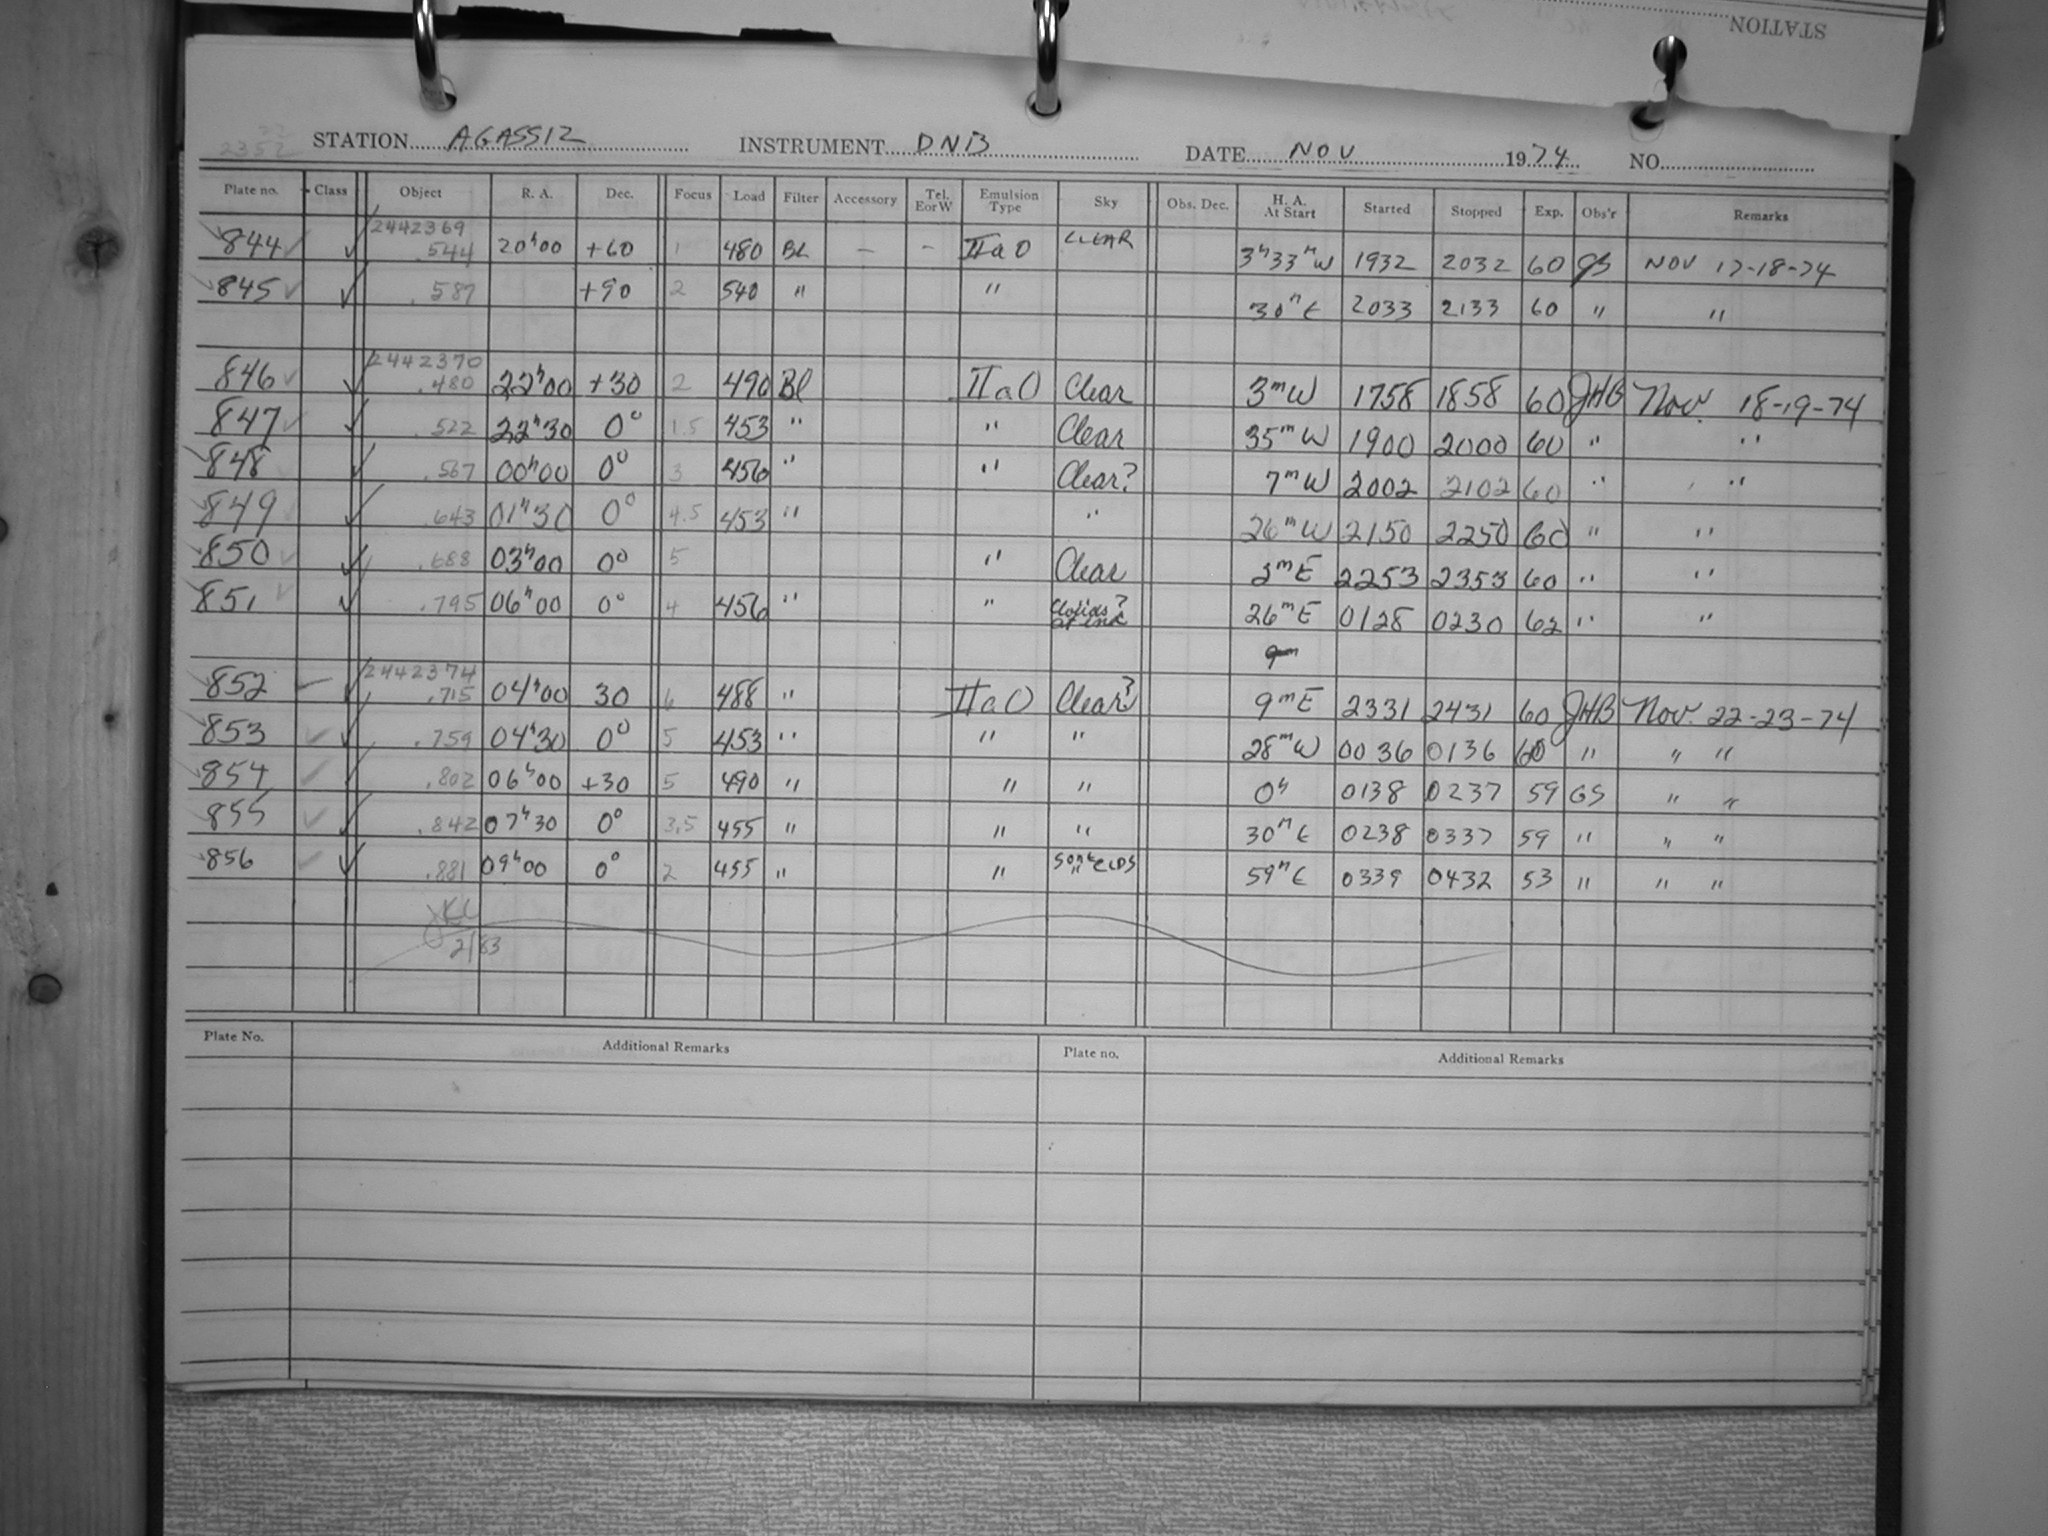 STATION
STATION AGASSIZ INSTRUMENT DNB DATE NOV 1974 NO.
Plate no. Class Object R. A. Dec. Focus Load Filter Accessory Tel. E or W Emulsion Type Sky Obs. Dec. H. A. At Start Started Stopped Exp. Obs'r Remarks
2442369
844 .544 20h00 +60 1 480 BL — - IIaO CLEAR 3h33m W 1932 2032 60 GS NOV 17-18-74
845 .587 +90 2 540 " " 30m E 2033 2133 60 " "
2442370
846 .480 22h00 +30 2 490 Bl IIaO Clear 3m W 1758 1858 60 JHB Nov. 18-19-74
847 .522 22h30 0° 1.5 453 " " Clear 35m W 1900 2000 60 " "
848 .567 00h00 0° 3 456 " " Clear? 7m W 2002 2102 60 " "
849 .643 01h30 0° 4.5 453 " " 26m W 2150 2250 60 " "
850 .688 03h00 0° 5 " Clear 2m E 2253 2353 60 " "
851 .795 06h00 0° 4 456 " " Clouds? at end 26m E 0128 0230 62 " "
9m
2442374
852 .715 04h00 30 6 488 " IIaO Clear? 9m E 2331 2431 60 JHB Nov. 22-23-74
853 .759 04h30 0° 5 453 " " " 28m W 0036 0136 60 " " "
854 .802 06h00 +30 5 490 " " " 0h 0138 0237 59 GS " "
855 .842 07h30 0° 3.5 455 " " " 30m E 0238 0337 59 " " "
856 .881 09h00 0° 2 455 " " SOME CLDS " 59m E 0339 0432 53 " " "
2/83
Plate No. Additional Remarks Plate no. Additional Remarks